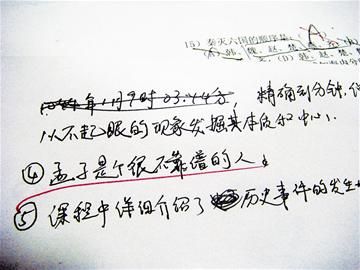 15) 秦灭六国的顺序是:
(A) 韩、魏、赵、楚
(D) 韩
年11月9时03:44分,精确到分钟,
从不起眼的现象发掘其本质和中心.
④ 孟子是个很不靠谱的人。
⑤ 课程中详细介绍了 历史事件的发生